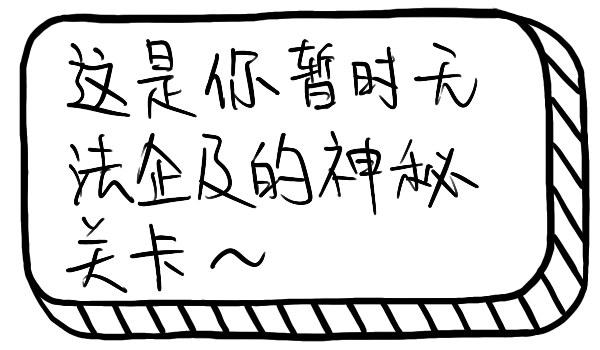 这是你暂时无
法企及的神秘
关卡～